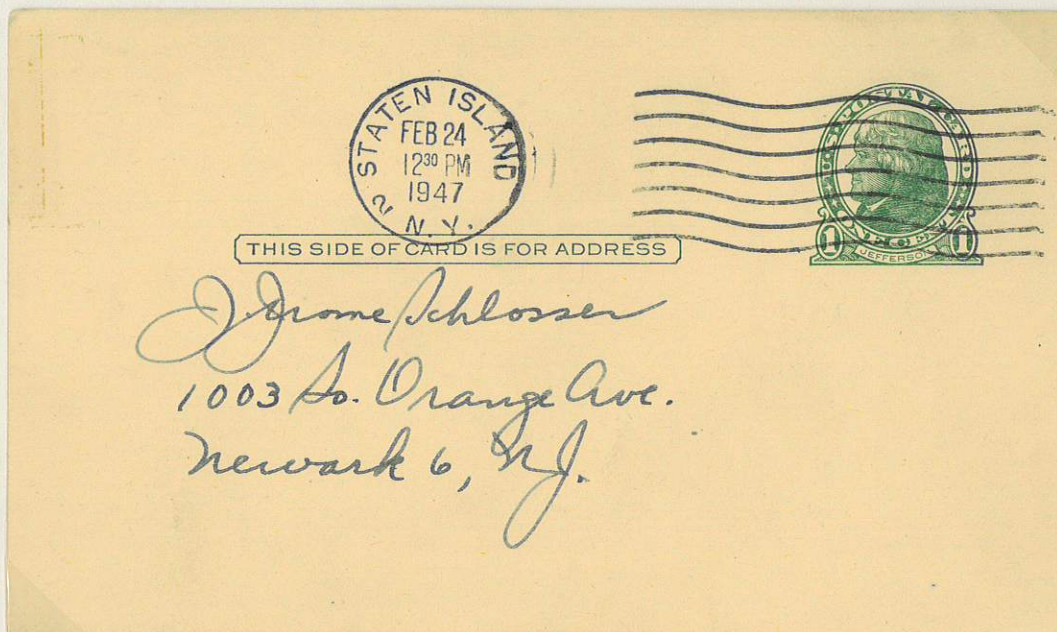 STATEN ISLAND
FEB 24
12³⁰ PM
1947
2 N.Y.
U.S. POSTAL CARD
ONE CENT
1 JEFFERSON 1
THIS SIDE OF CARD IS FOR ADDRESS
J. Jerome Schlosser
1003 So. Orange Ave.
Newark 6, N.J.